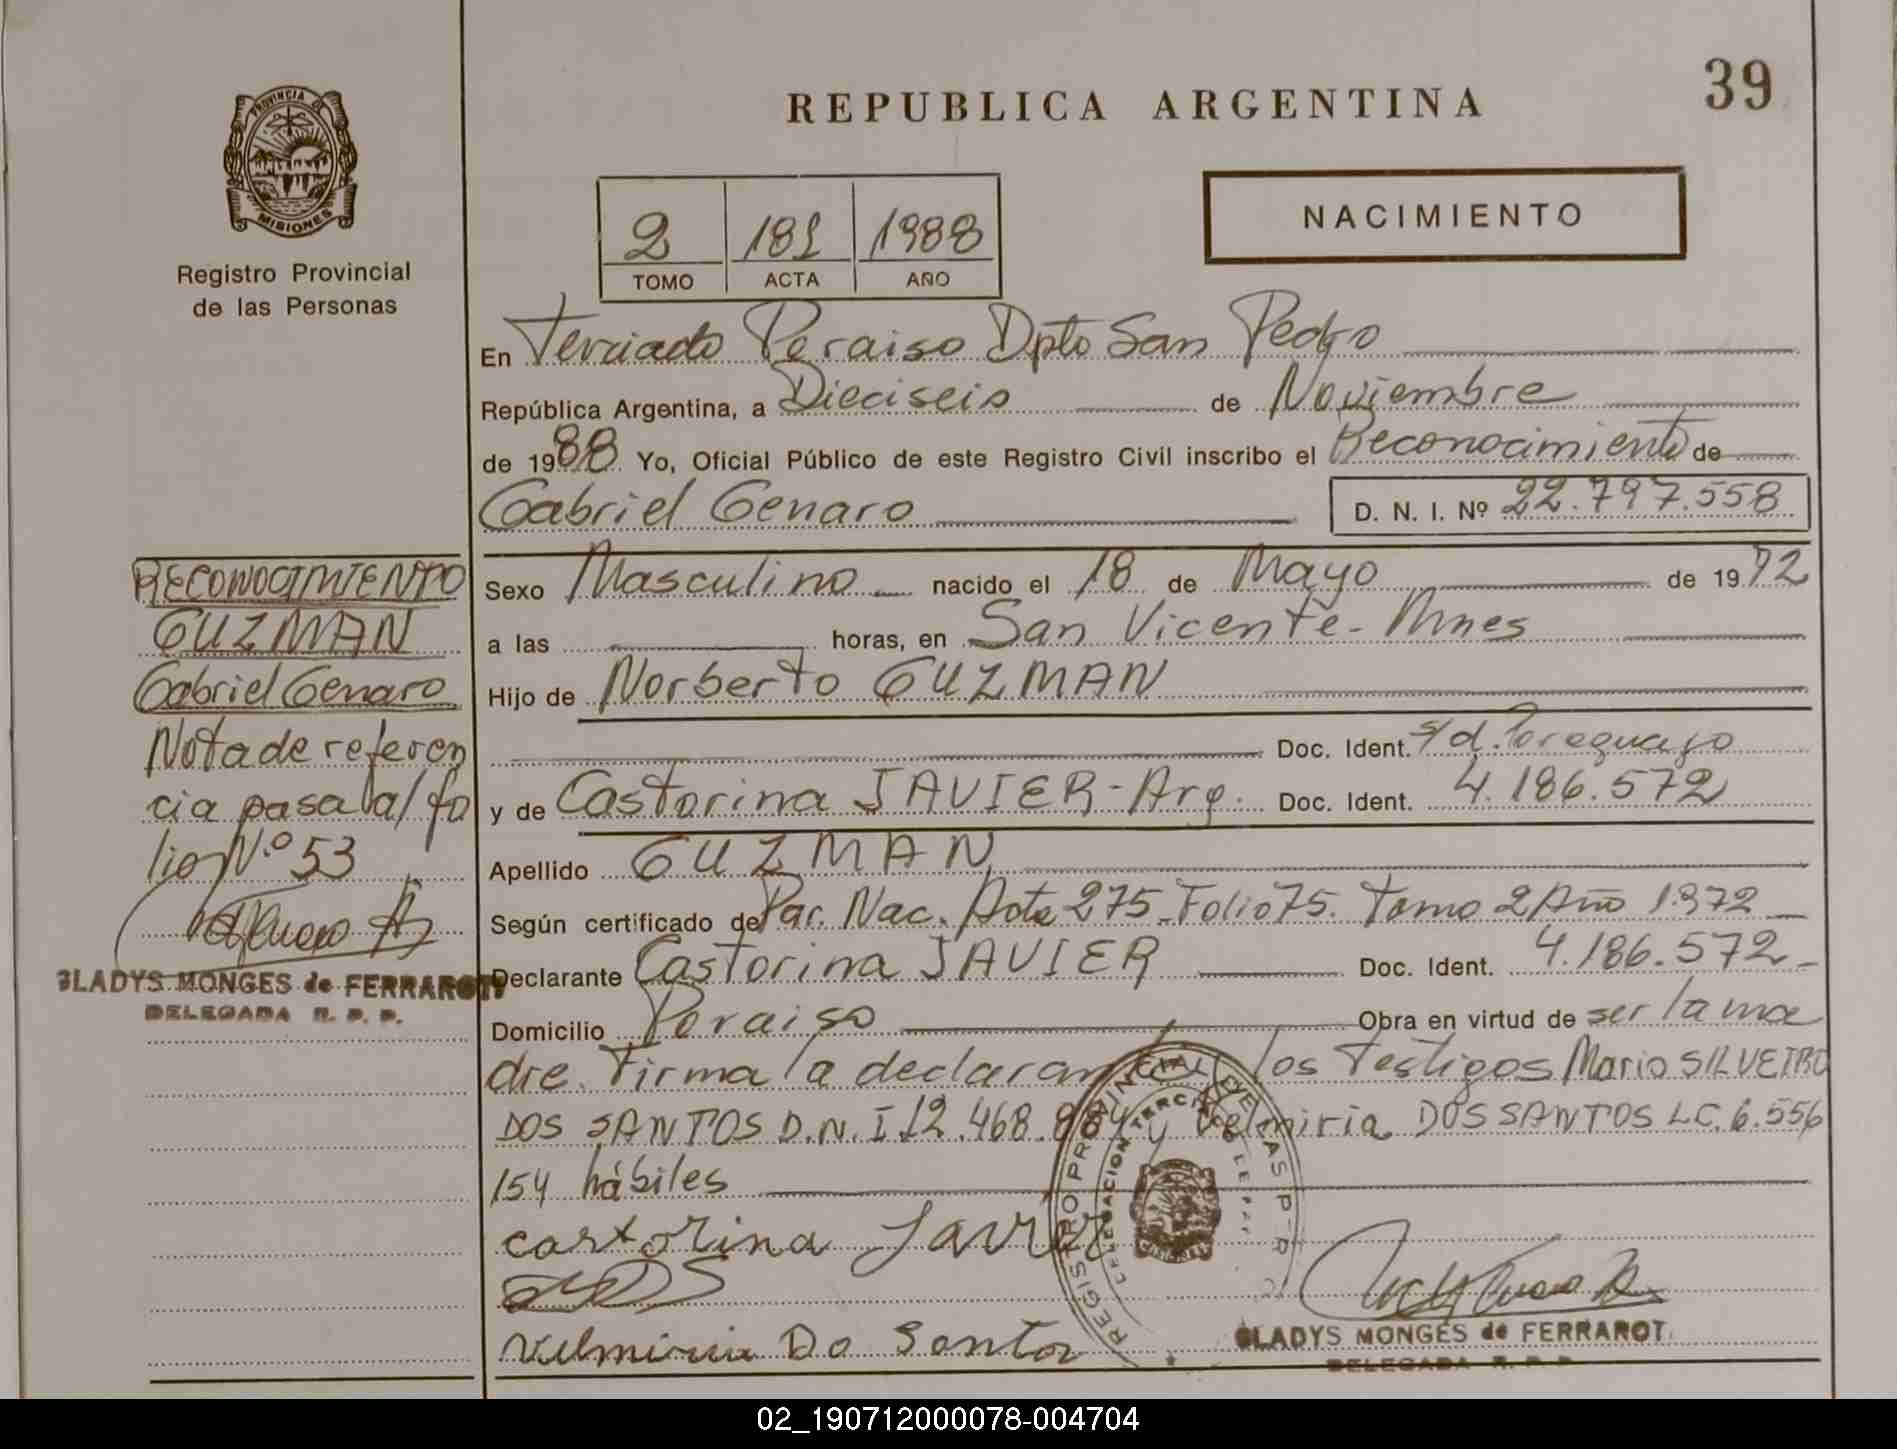 39
REPUBLICA ARGENTINA
PROVINCIA DE
MISIONES
Registro Provincial
de las Personas
NACIMIENTO
2 181 1988
TOMO ACTA AÑO
En Terciado Paraiso Dpto San Pedro
República Argentina, a Dieciseis de Noviembre
de 1988 Yo, Oficial Público de este Registro Civil inscribo el Reconocimiento de
Gabriel Genaro D. N. I. Nº 22.797.558
RECONOCIMIENTO
GUZMAN
Gabriel Genaro
Nota de referen
cia pasa al fo
lio Nº 53
GLADYS MONGES de FERRAROTI
DELEGADA R. P. P.
Sexo Masculino nacido el 18 de Mayo de 1972
a las horas, en San Vicente - Mnes
Hijo de Norberto GUZMAN
Doc. Ident. s/d. Paraguayo
y de Castorina JAVIER - Arg. Doc. Ident. 4.186.572
Apellido GUZMAN
Según certificado de Par. Nac. Acta 275 Folio 75. Tomo 2 Año 1.972
Declarante Castorina JAVIER Doc. Ident. 4.186.572
Domicilio Paraiso Obra en virtud de ser la ma
dre. Firma la los testigos Mario SILVEIRO
DOS SANTOS D.N.I 12.468.884 y Velmiria DOS SANTOS L.C. 6.556
154 hábiles
castorina Javier
Velmiria Do Santo
REGISTRO PROVINCIAL DE LAS PER
DELEGACION TERCIADO
MISIONES
GLADYS MONGES de FERRAROT
DELEGADA R. P. P.
02_190712000078-004704